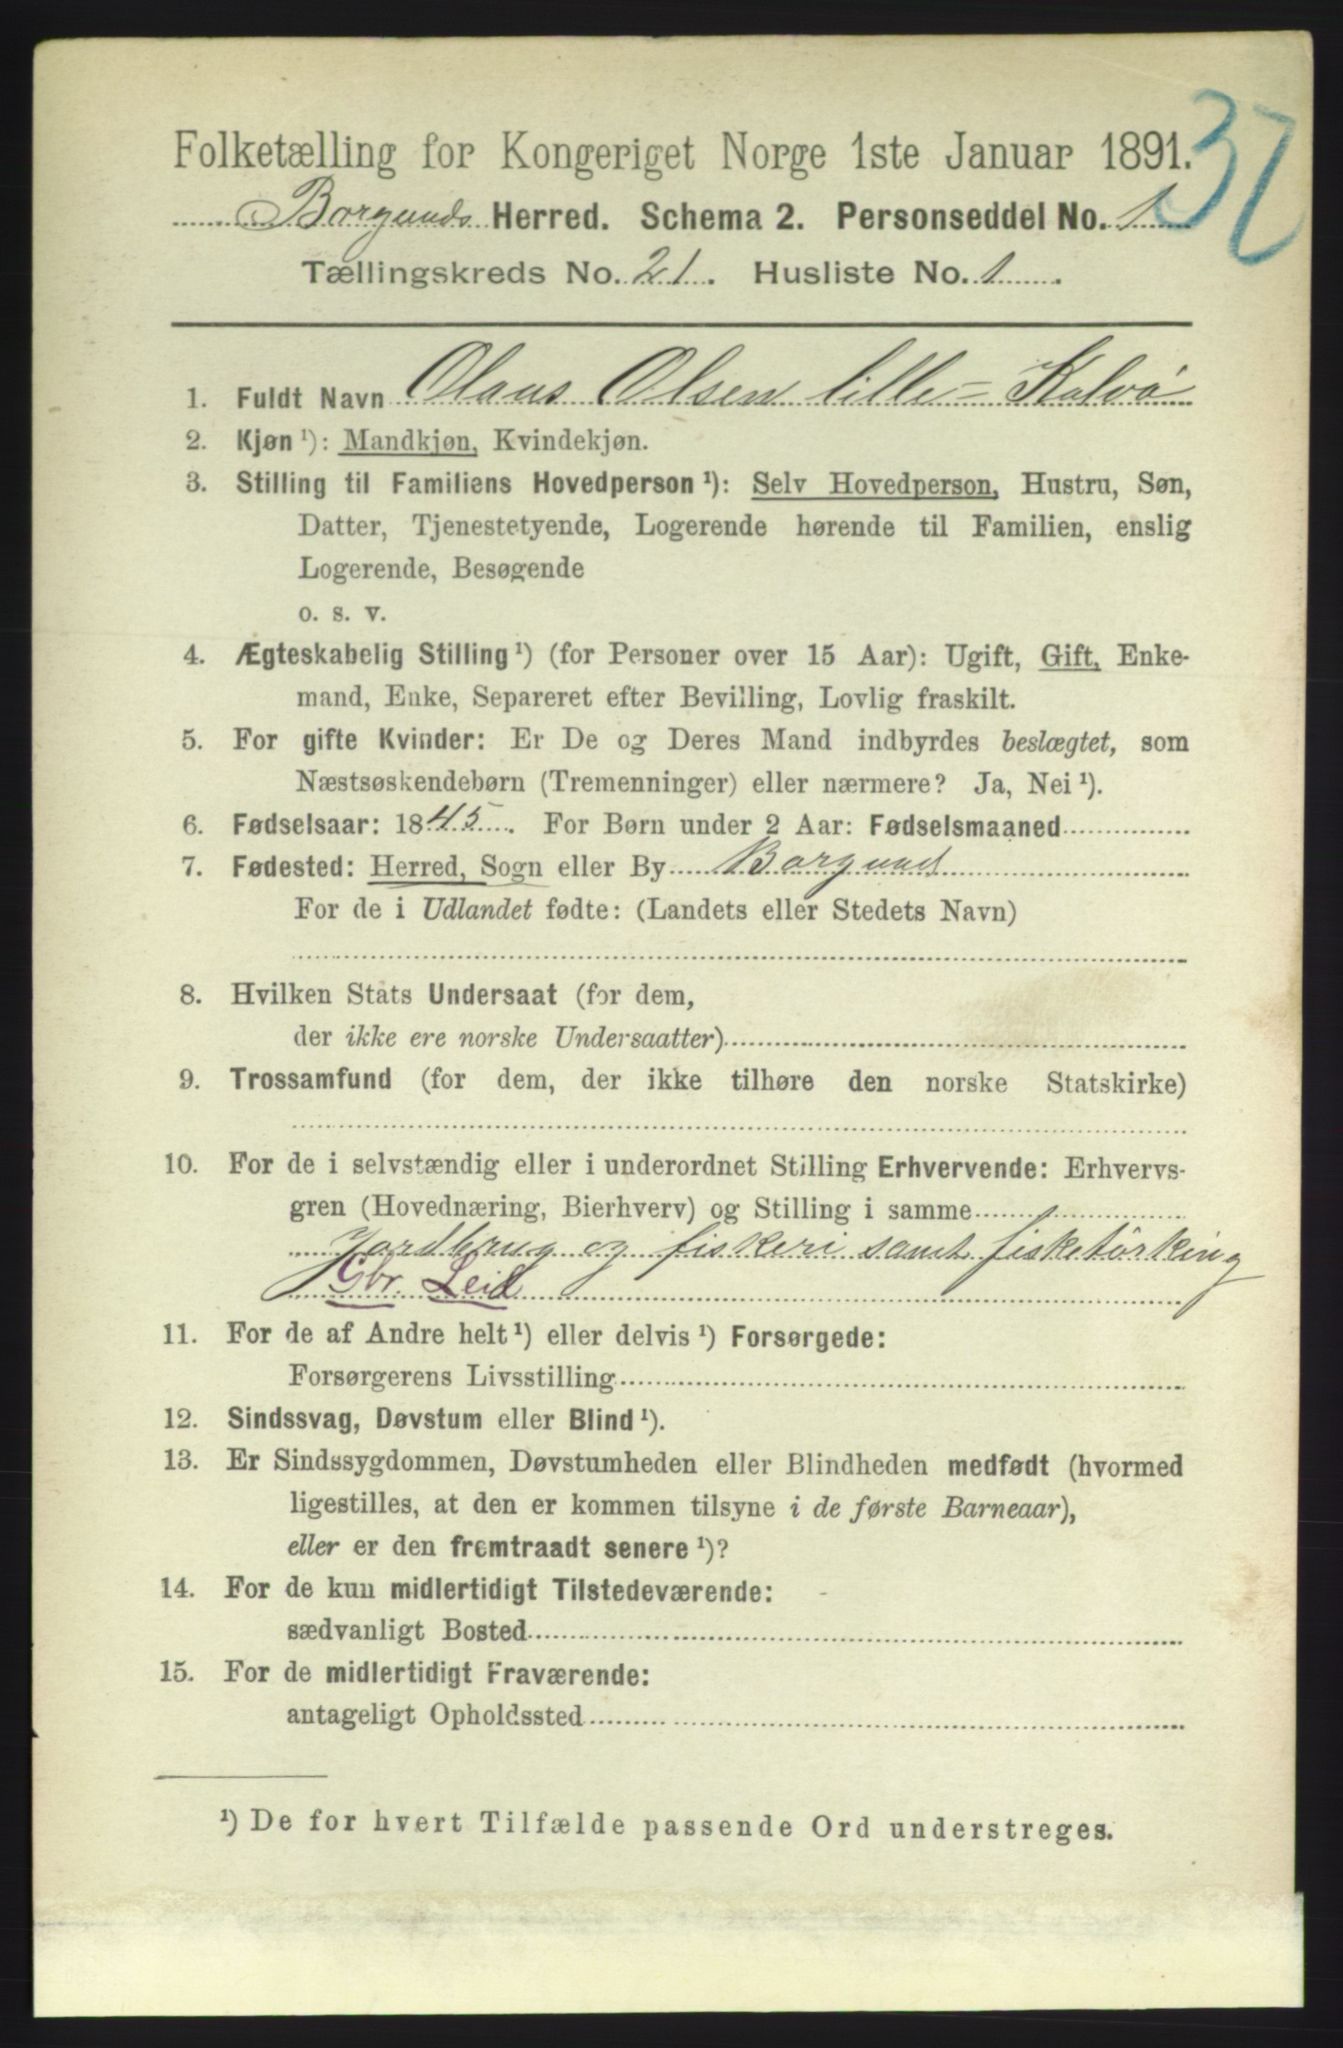 32
Folketælling for Kongeriget Norge 1ste Januar 1891.
Borgunds Herred. Schema 2. Personseddel No. 1
Tællingskreds No. 21. Husliste No. 1.
1. Fuldt Navn Olaus Olsen lille-Kalvö
2. Kjøn ¹): Mandkjøn, Kvindekjøn.
3. Stilling til Familiens Hovedperson ¹): Selv Hovedperson, Hustru, Søn,
Datter, Tjenestetyende, Logerende hørende til Familien, enslig
Logerende, Besøgende
o. s. v.
4. Ægteskabelig Stilling ¹) (for Personer over 15 Aar): Ugift, Gift, Enke-
mand, Enke, Separeret efter Bevilling, Lovlig fraskilt.
5. For gifte Kvinder: Er De og Deres Mand indbyrdes beslægtet, som
Næstsøskendebørn (Tremenninger) eller nærmere? Ja, Nei ¹).
6. Fødselsaar: 1845. For Børn under 2 Aar: Fødselsmaaned
7. Fødested: Herred, Sogn eller By Borgund
For de i Udlandet fødte: (Landets eller Stedets Navn)
8. Hvilken Stats Undersaat (for dem,
der ikke ere norske Undersaatter)
9. Trossamfund (for dem, der ikke tilhøre den norske Statskirke)
10. For de i selvstændig eller i underordnet Stilling Erhvervende: Erhvervs-
gren (Hovednæring, Bierhverv) og Stilling i samme
Jordbrug og fiskeri samt fisketörking
Gbr. Leid
11. For de af Andre helt ¹) eller delvis ¹) Forsørgede:
Forsørgerens Livsstilling
12. Sindssvag, Døvstum eller Blind ¹).
13. Er Sindssygdommen, Døvstumheden eller Blindheden medfødt (hvormed
ligestilles, at den er kommen tilsyne i de første Barneaar),
eller er den fremtraadt senere ¹)?
14. For de kun midlertidigt Tilstedeværende:
sædvanligt Bosted
15. For de midlertidigt Fraværende:
antageligt Opholdssted
¹) De for hvert Tilfælde passende Ord understreges.